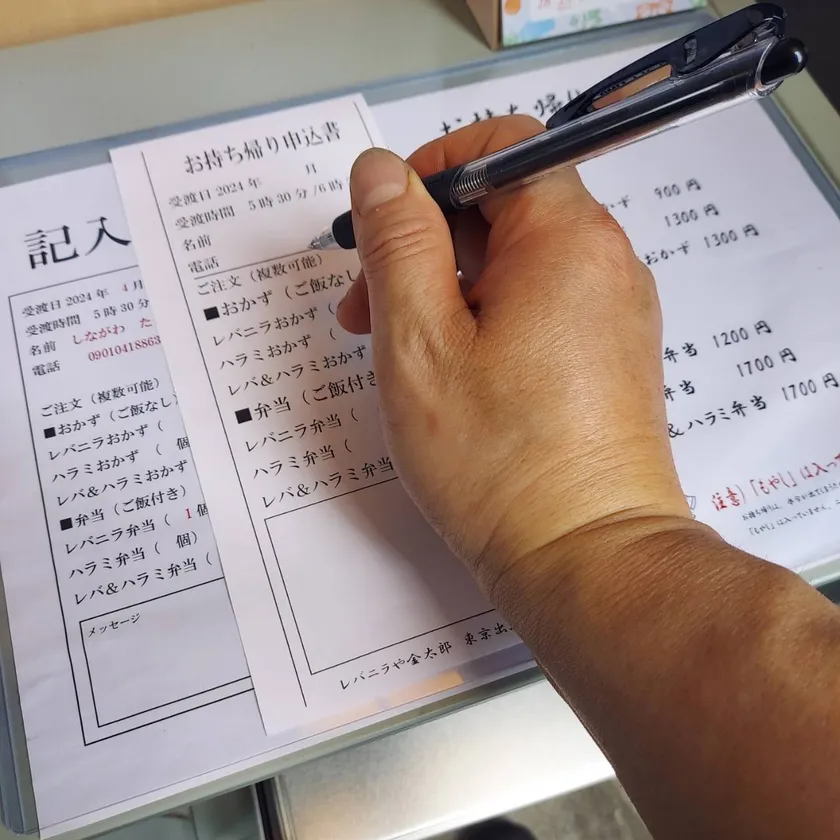 記入
受渡日 2024 年 4 月
受渡時間 5 時 30 分
名前 しながわ た
電話 09010418863
ご注文（複数可能）
■おかず（ご飯なし
レバニラおかず（
ハラミおかず（ 個
レバ&ハラミおかず
■弁当（ご飯付き）
レバニラ弁当（ 1 個
ハラミ弁当（ 個）
レバ&ハラミ弁当（
メッセージ
お持ち帰り申込書
受渡日 2024 年 月
受渡時間 5 時 30 分 /6 時
名前
電話
ご注文（複数可能）
■おかず（ご飯なし
レバニラおかず（
ハラミおかず（
レバ&ハラミおかず
■弁当（ご飯付き
レバニラ弁当（
ハラミ弁当（
レバ&ハラミ弁当
レバニラや金太郎 東京出
お持ち帰り
かず 900 円
1300 円
おかず 1300 円
弁当 1200 円
弁当 1700 円
& ハラミ弁当 1700 円
注意）「もやし」は入っ
「もやし」は入っていません。